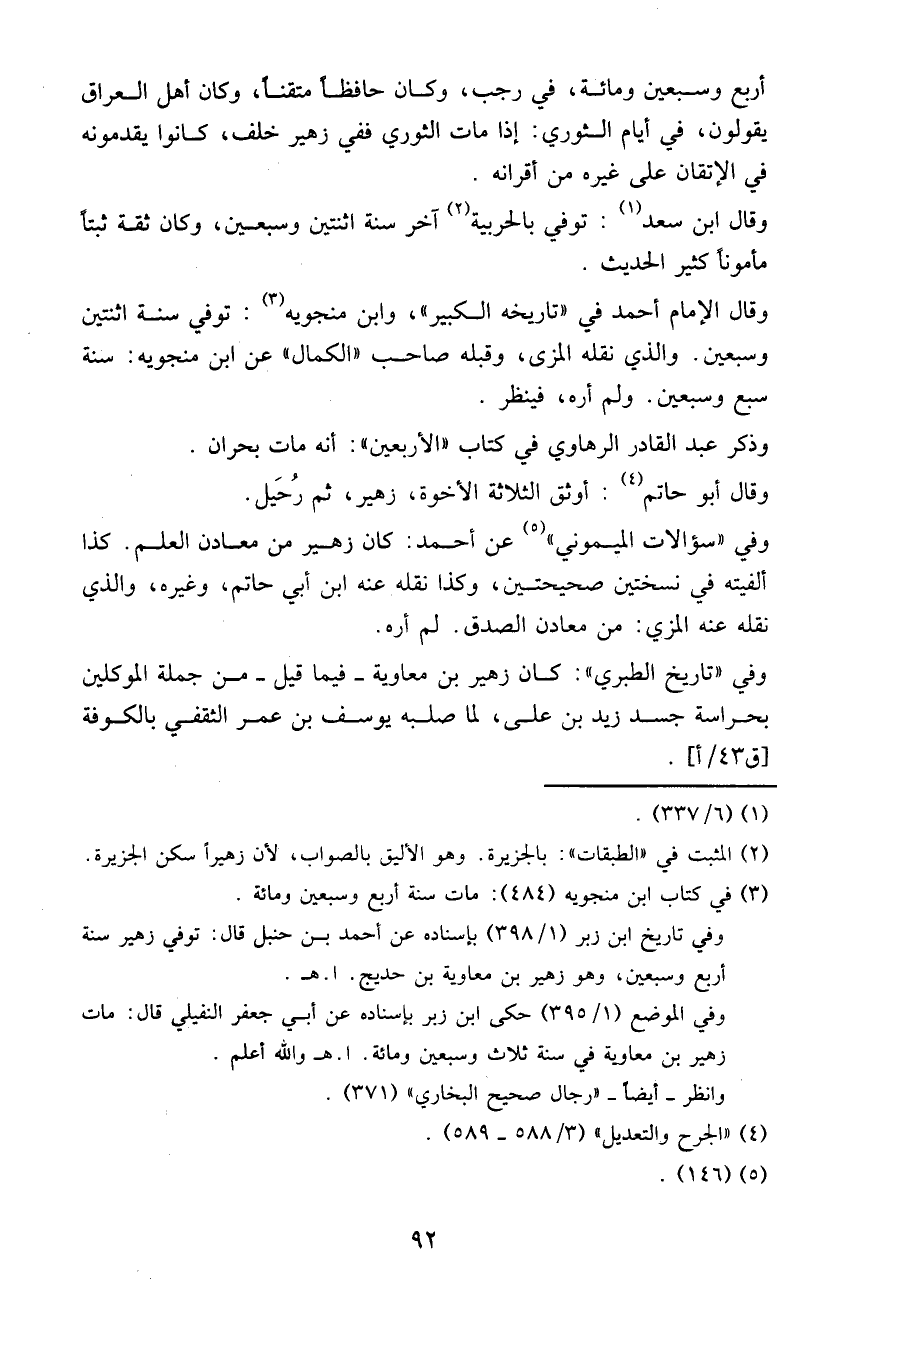 أربع وسبعين ومائة، في رجب، وكان حافظاً متقناً، وكان أهل العراق
يقولون، في أيام الثوري: إذا مات الثوري ففي زهير خلف، كانوا يقدمونه
في الإتقان على غيره من أقرانه .
وقال ابن سعد(١) : توفي بالحربية(٢) آخر سنة اثنتين وسبعين، وكان ثقة ثبتاً
مأموناً كثير الحديث .
وقال الإمام أحمد في «تاريخه الكبير»، وابن منجويه(٣) : توفي سنة اثنتين
وسبعين. والذي نقله المزى، وقبله صاحب «الكمال» عن ابن منجويه: سنة
سبع وسبعين. ولم أره، فينظر .
وذكر عبد القادر الرهاوي في كتاب «الأربعين»: أنه مات بحران .
وقال أبو حاتم(٤) : أوثق الثلاثة الأخوة، زهير، ثم رُحَيل.
وفي «سؤالات الميموني»(٥) عن أحمد: كان زهير من معادن العلم. كذا
ألفيته في نسختين صحيحتين، وكذا نقله عنه ابن أبي حاتم، وغيره، والذي
نقله عنه المزي: من معادن الصدق. لم أره.
وفي «تاريخ الطبري»: كان زهير بن معاوية ـ فيما قيل ـ من جملة الموكلين
بحراسة جسد زيد بن على، لما صلبه يوسف بن عمر الثقفي بالكوفة
[ق٤٣/ أ] .
(١) (٣٣٧/٦) .
(٢) المثبت في «الطبقات»: بالجزيرة. وهو الأليق بالصواب، لأن زهيراً سكن الجزيرة.
(٣) في كتاب ابن منجويه (٤٨٤): مات سنة أربع وسبعين ومائة .
وفي تاريخ ابن زبر (٣٩٨/١) بإسناده عن أحمد بن حنبل قال: توفي زهير سنة
أربع وسبعين، وهو زهير بن معاوية بن حديج. ا.هـ .
وفي الموضع (٣٩٥/١) حكى ابن زبر بإسناده عن أبي جعفر النفيلي قال: مات
زهير بن معاوية في سنة ثلاث وسبعين ومائة. ا.هـ والله أعلم .
وانظر ـ أيضاً ـ «رجال صحيح البخاري» (٣٧١) .
(٤) «الجرح والتعديل» (٥٨٨/٣ ـ ٥٨٩) .
(٥) (١٤٦) .
٩٢